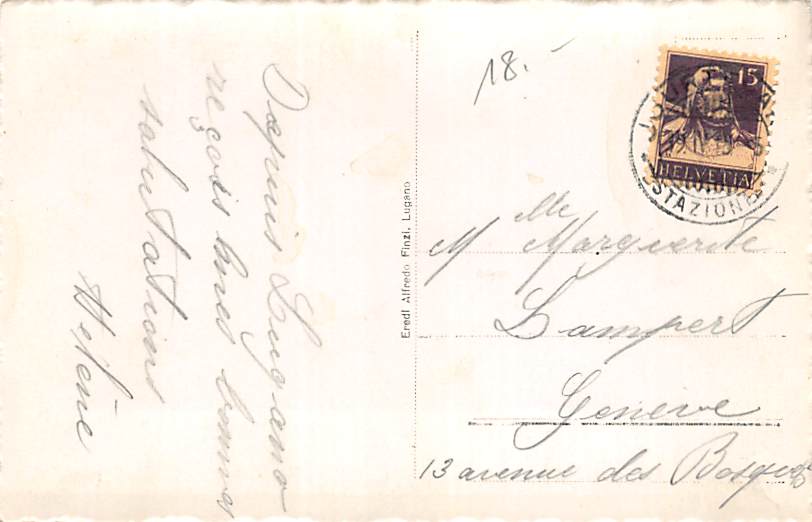 Depuis Lugano
reçois mes bonnes
salutations
Hélène
Eredi Alfredo Finzi, Lugano
18.-
15
HELVETIA
STAZIONE
Mlle Marguerite
Lampert
Genève
13 avenue des Bosquets